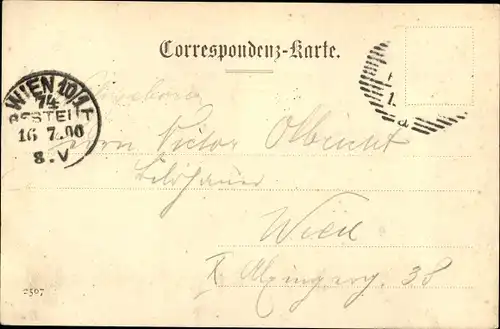 Correspondenz-Karte.
WIEN 10/1
74
BESTELLT
16 7.00
8.V
Victor Olbricht
Bildhauer
Wien
X. Alxingerg. 38
2507